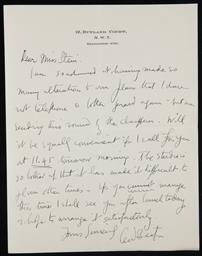 12, RUTLAND COURT,
S.W.7.
Dear Miss Stein:
I am so ashamed at having made so
many alterations to our plans that I dare
not telephone to bother you again - but am
sending this round by the chauffeur. Will
it be equally convenient if I call for you
at 11.45 tomorrow morning. The studio is
so that it has made it difficult to
other times - If you cannot manage
this time I shall see you after lunch today
& hope to arrange it satisfactorily
Yours Sincerely
Cecil Beaton